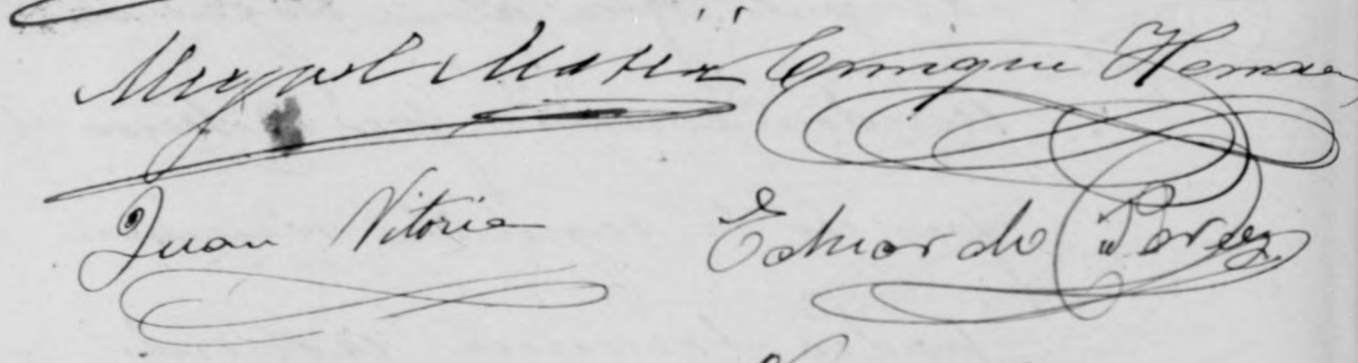 Miguel Maria Enrique Hernan
Juan Vitoria Eduardo Perez